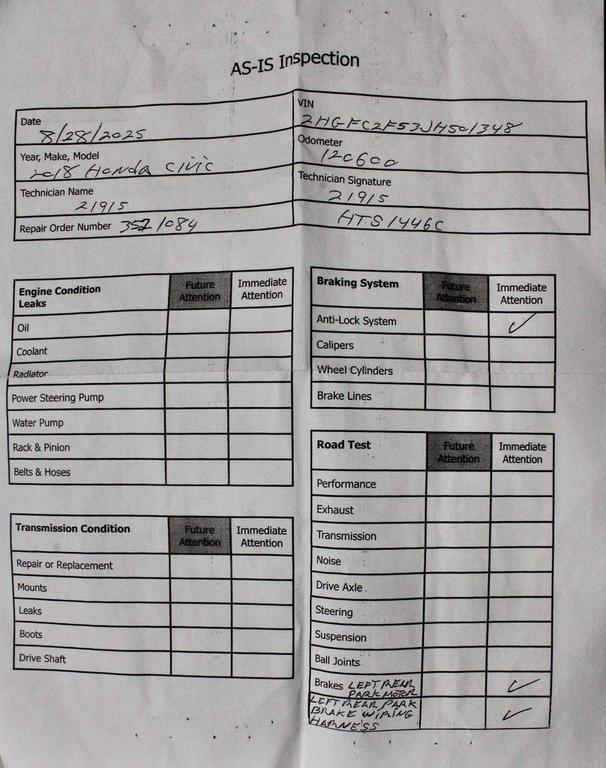 AS-IS Inspection
Date 8/28/2025
VIN 2HGFC2F53JH501348
Year, Make, Model 2018 Honda CIVIC
Odometer 120600
Technician Name 21915
Technician Signature 21915
Repair Order Number 3521084
HTS1446C
Engine Condition Leaks Future Attention Immediate Attention
Oil
Coolant
Radiator
Power Steering Pump
Water Pump
Rack & Pinion
Belts & Hoses
Transmission Condition Future Attention Immediate Attention
Repair or Replacement
Mounts
Leaks
Boots
Drive Shaft
Braking System Future Attention Immediate Attention
Anti-Lock System ✓
Calipers
Wheel Cylinders
Brake Lines
Road Test Future Attention Immediate Attention
Performance
Exhaust
Transmission
Noise
Drive Axle
Steering
Suspension
Ball Joints
Brakes LEFT REAR PARK MOTOR ✓
LEFT REAR PARK BRAKE WIRING HARNESS ✓